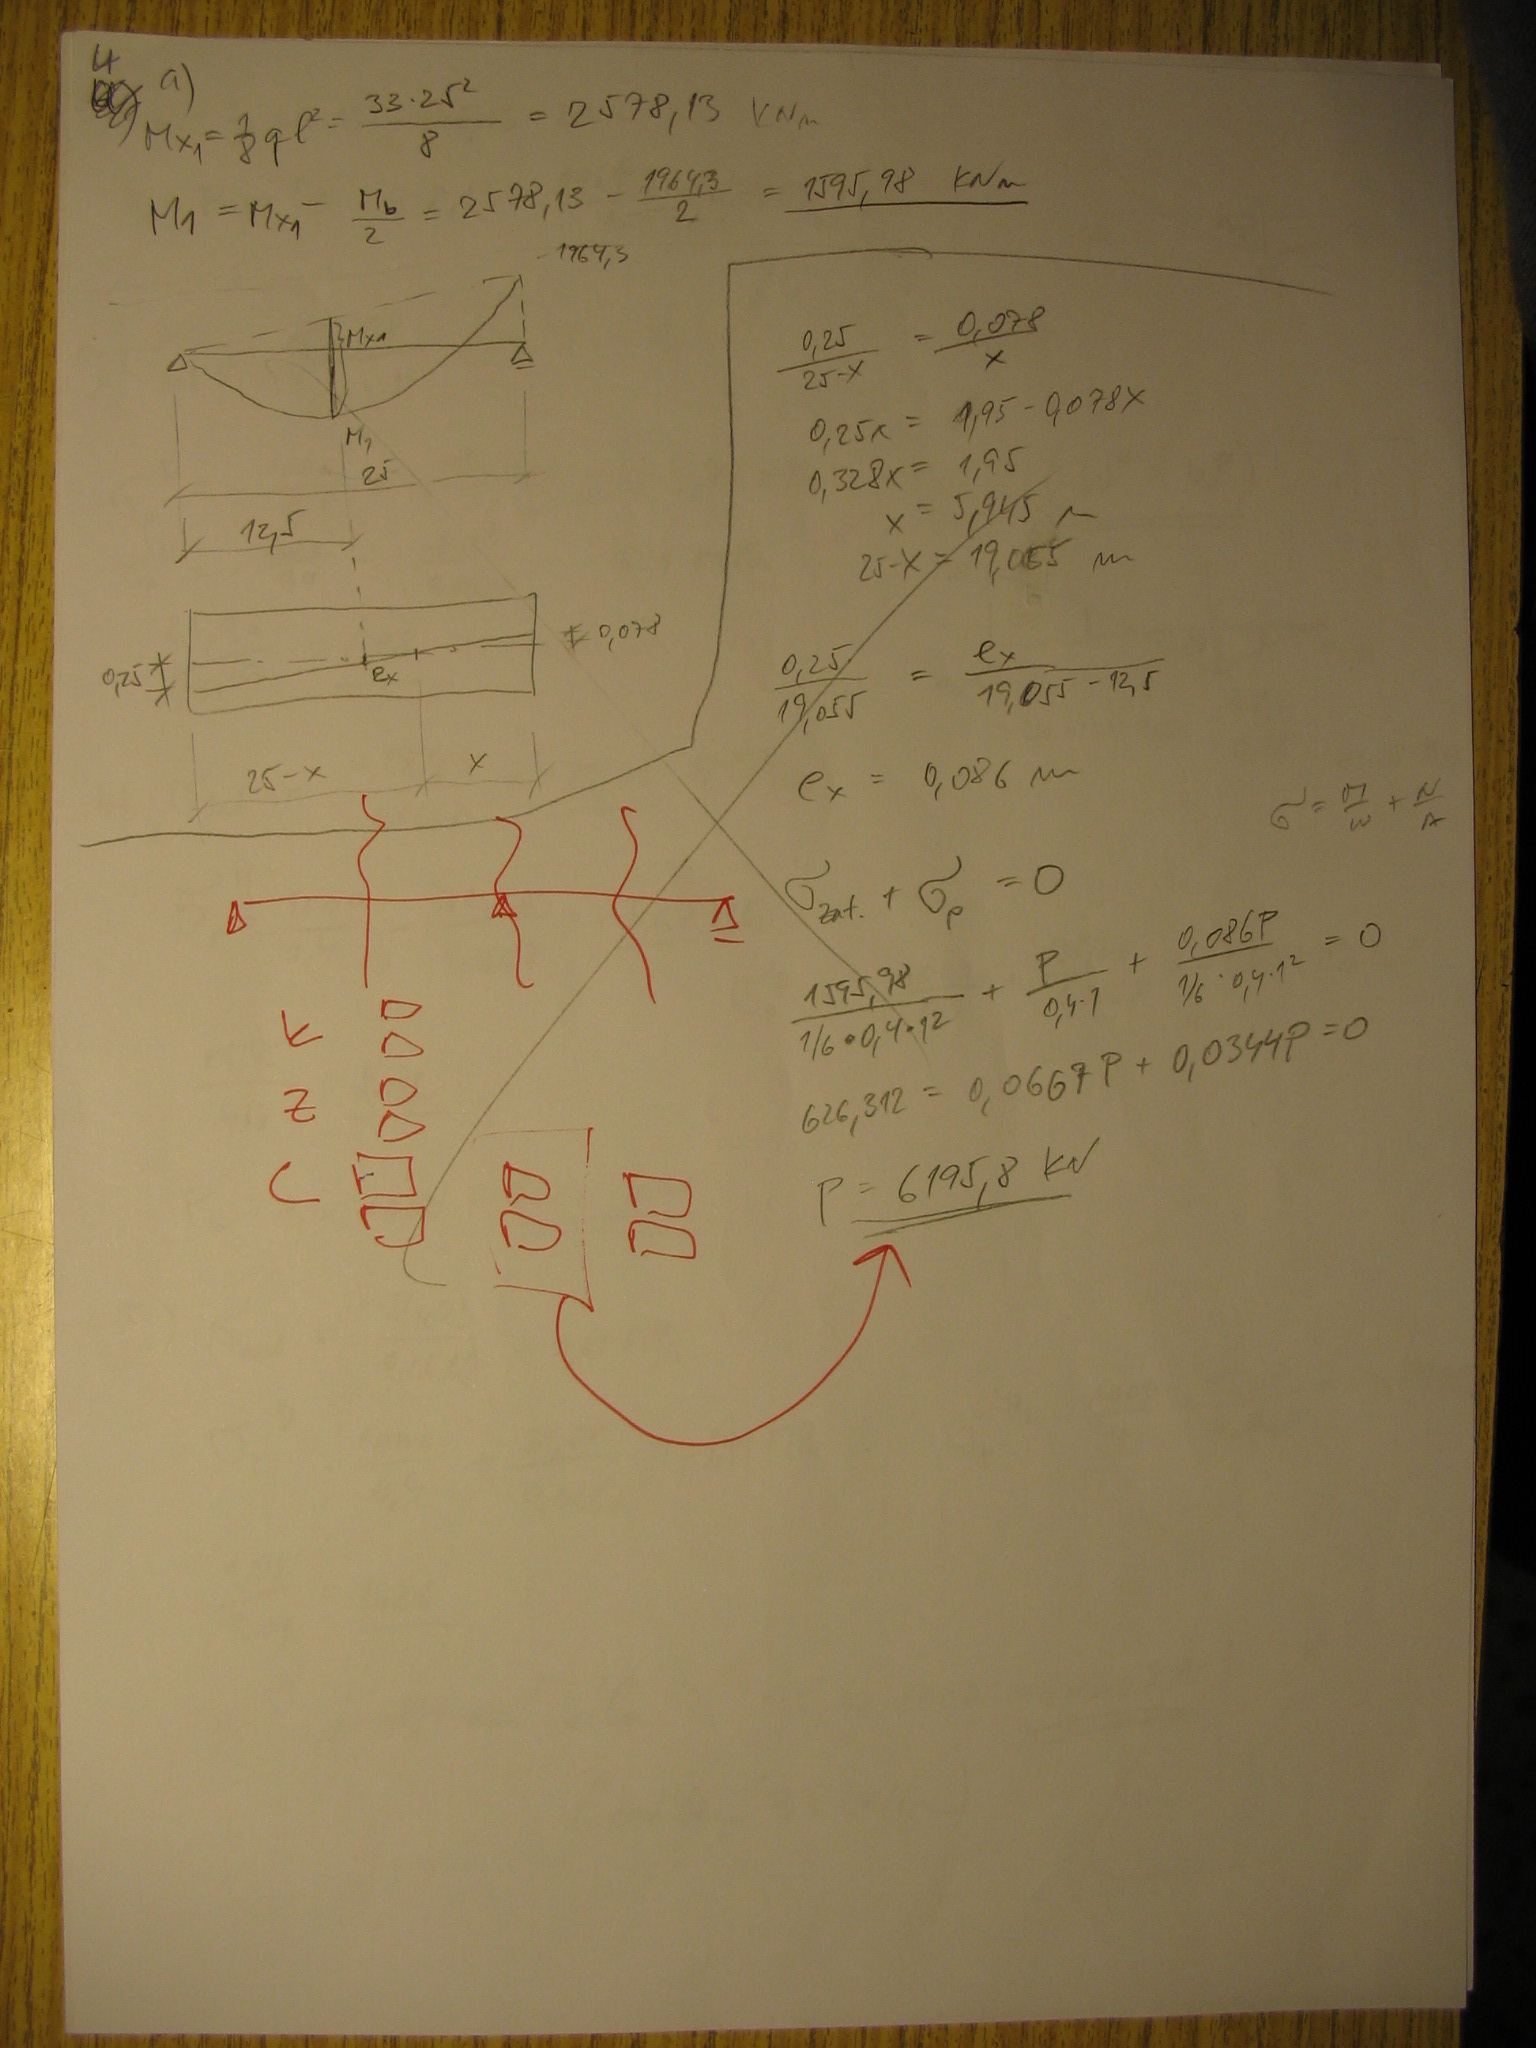 4
a)
Mx₁ = 1/8 q l² = 33·25² / 8 = 2578,13 kNm
M1 = Mx1 - Mb/2 = 2578,13 - 1964,3/2 = 1595,98 kNm
-1964,3
Mx1
M1
25
12,5
0,078
0,25
ex
25-x
x
0,25/(25-x) = 0,078/x
0,25x = 1,95 - 0,078x
0,328x = 1,95
x = 5,945 m
25-x = 19,055 m
0,25/19,055 = ex/(19,055 - 12,5)
ex = 0,086 m
σ = M/W + N/A
σzat. + σp = 0
1595,98/(1/6·0,4·1²) + P/(0,4·1) + 0,086P/(1/6·0,4·1²) = 0
626,312 = 0,0667P + 0,0344P = 0
P = 6195,8 kN
K
Z
C